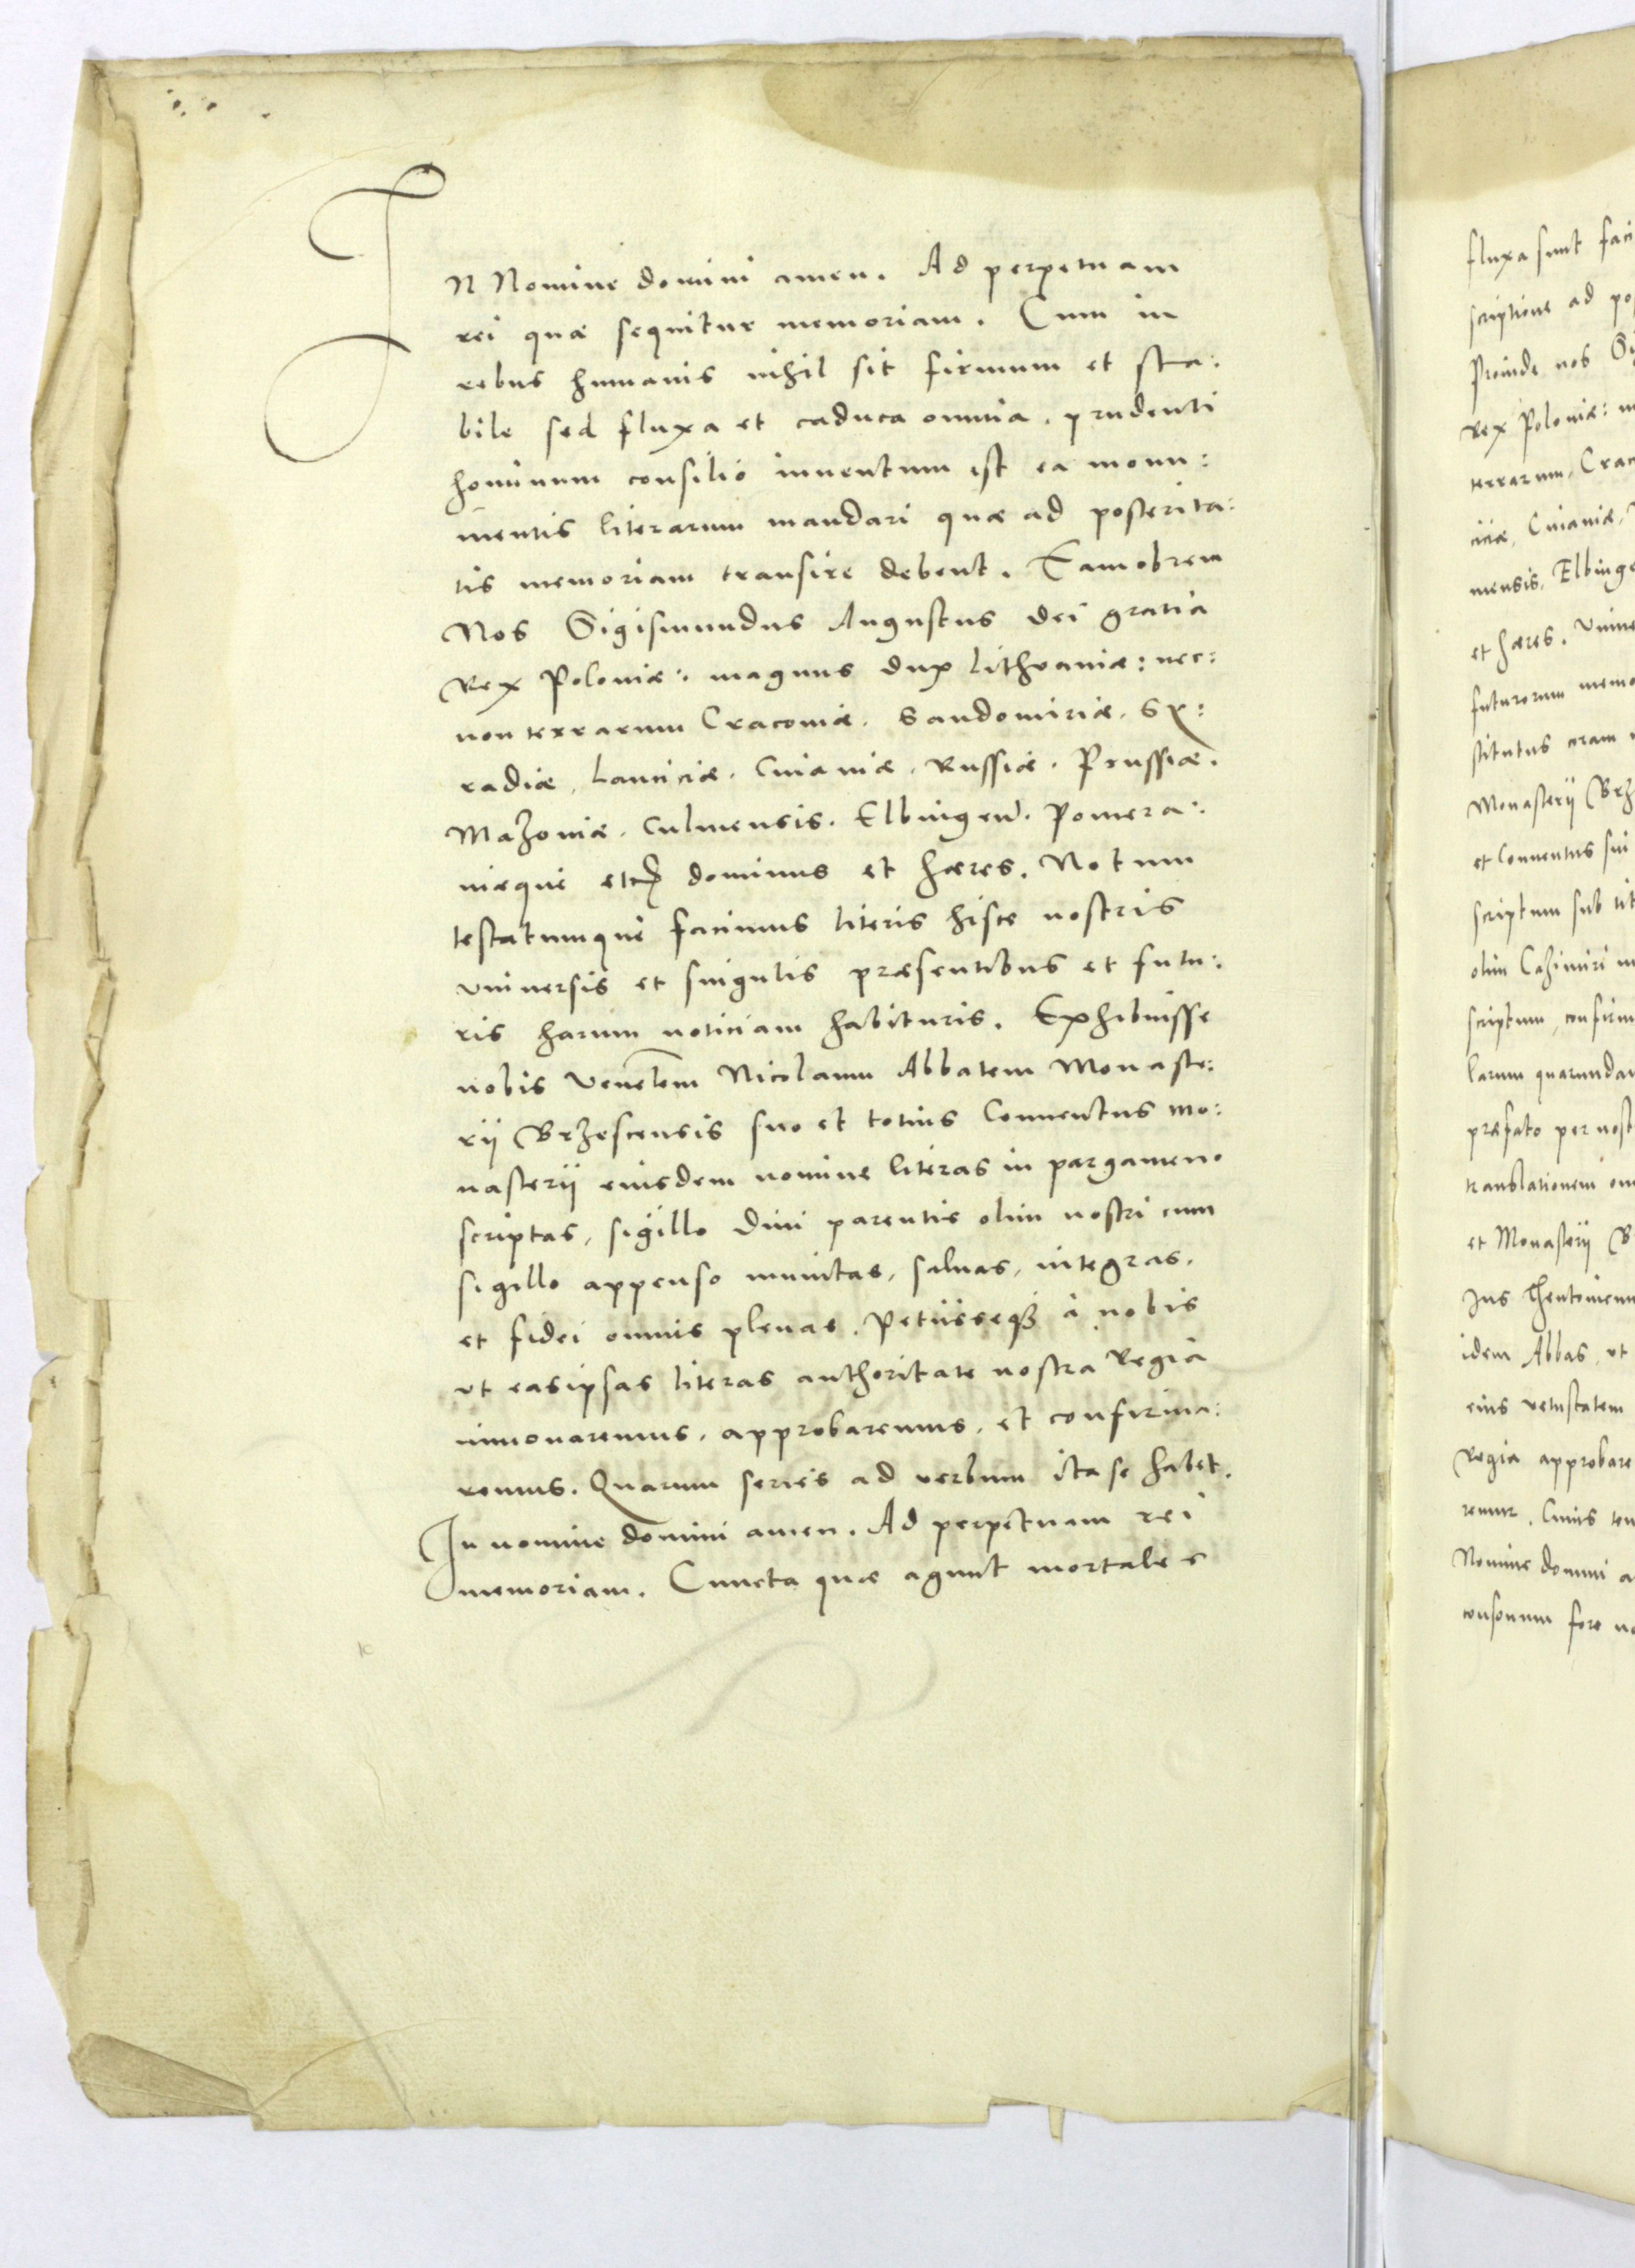 IN Nomine domini amen. Ad perpetuam
rei quæ sequitur memoriam. Cum in
rebus humanis nihil sit firmum et sta:
bile sed fluxa et caduca omnia, prudenti
hominum consilio inuentum est ea monu:
mentis literarum mandari quæ ad posterita:
tis memoriam transire debent. Eamobrem
Nos Sigismundus Augustus dei gratia
Rex Poloniæ: magnus dux Lithvaniæ: nec:
non terrarum Cracoviæ. Sandomiriæ. Sy:
radiæ, Lanciciæ. Cuiaviæ. Russiæ. Prussiæ.
Mazoviæ. Culmensis. Elbingeñ. Pomera:
niæque etc dominus et hæres. Notum
testatumque facimus literis hisce nostris
vniuersis et singulis præsentibus et futu:
ris harum noticiam habituris. Exhibuisse
nobis Venelem Nicolaum Abbatem Monaste:
rij Brzescensis suo et totius Conuentus mo:
nasterij eiusdem nomine literas in pargameno
scriptas, sigillo Diui parentis olim nostri cum
sigillo appenso munitas, saluas, integras,
et fidei omnis plenas. Petiisseq3 à nobis
vt easipsas literas authoritate nostra Regia
innouaremus, approbaremus, et confirma:
remus. Quarum series ad verbum ita se habet.
In nomine domini amen. Ad perpetuam rei
memoriam. Cuncta quæ agunt mortales
fluxa sunt
scriptione ad
Proinde nos
Rex Poloniæ:
terrarum,
ciciæ, Cuiaviæ,
mensis,
et hæres.
futurorum
stitutus coram
Monasterij
et Conuentus sui
scriptum sub
olim Cazimiri
scriptum,
larum
præfato per
translationem
et Monasterij
Ius
idem Abbas, vt
eius vetustatem
Regia
remur. Cuius
Nomine domini
consonum fore